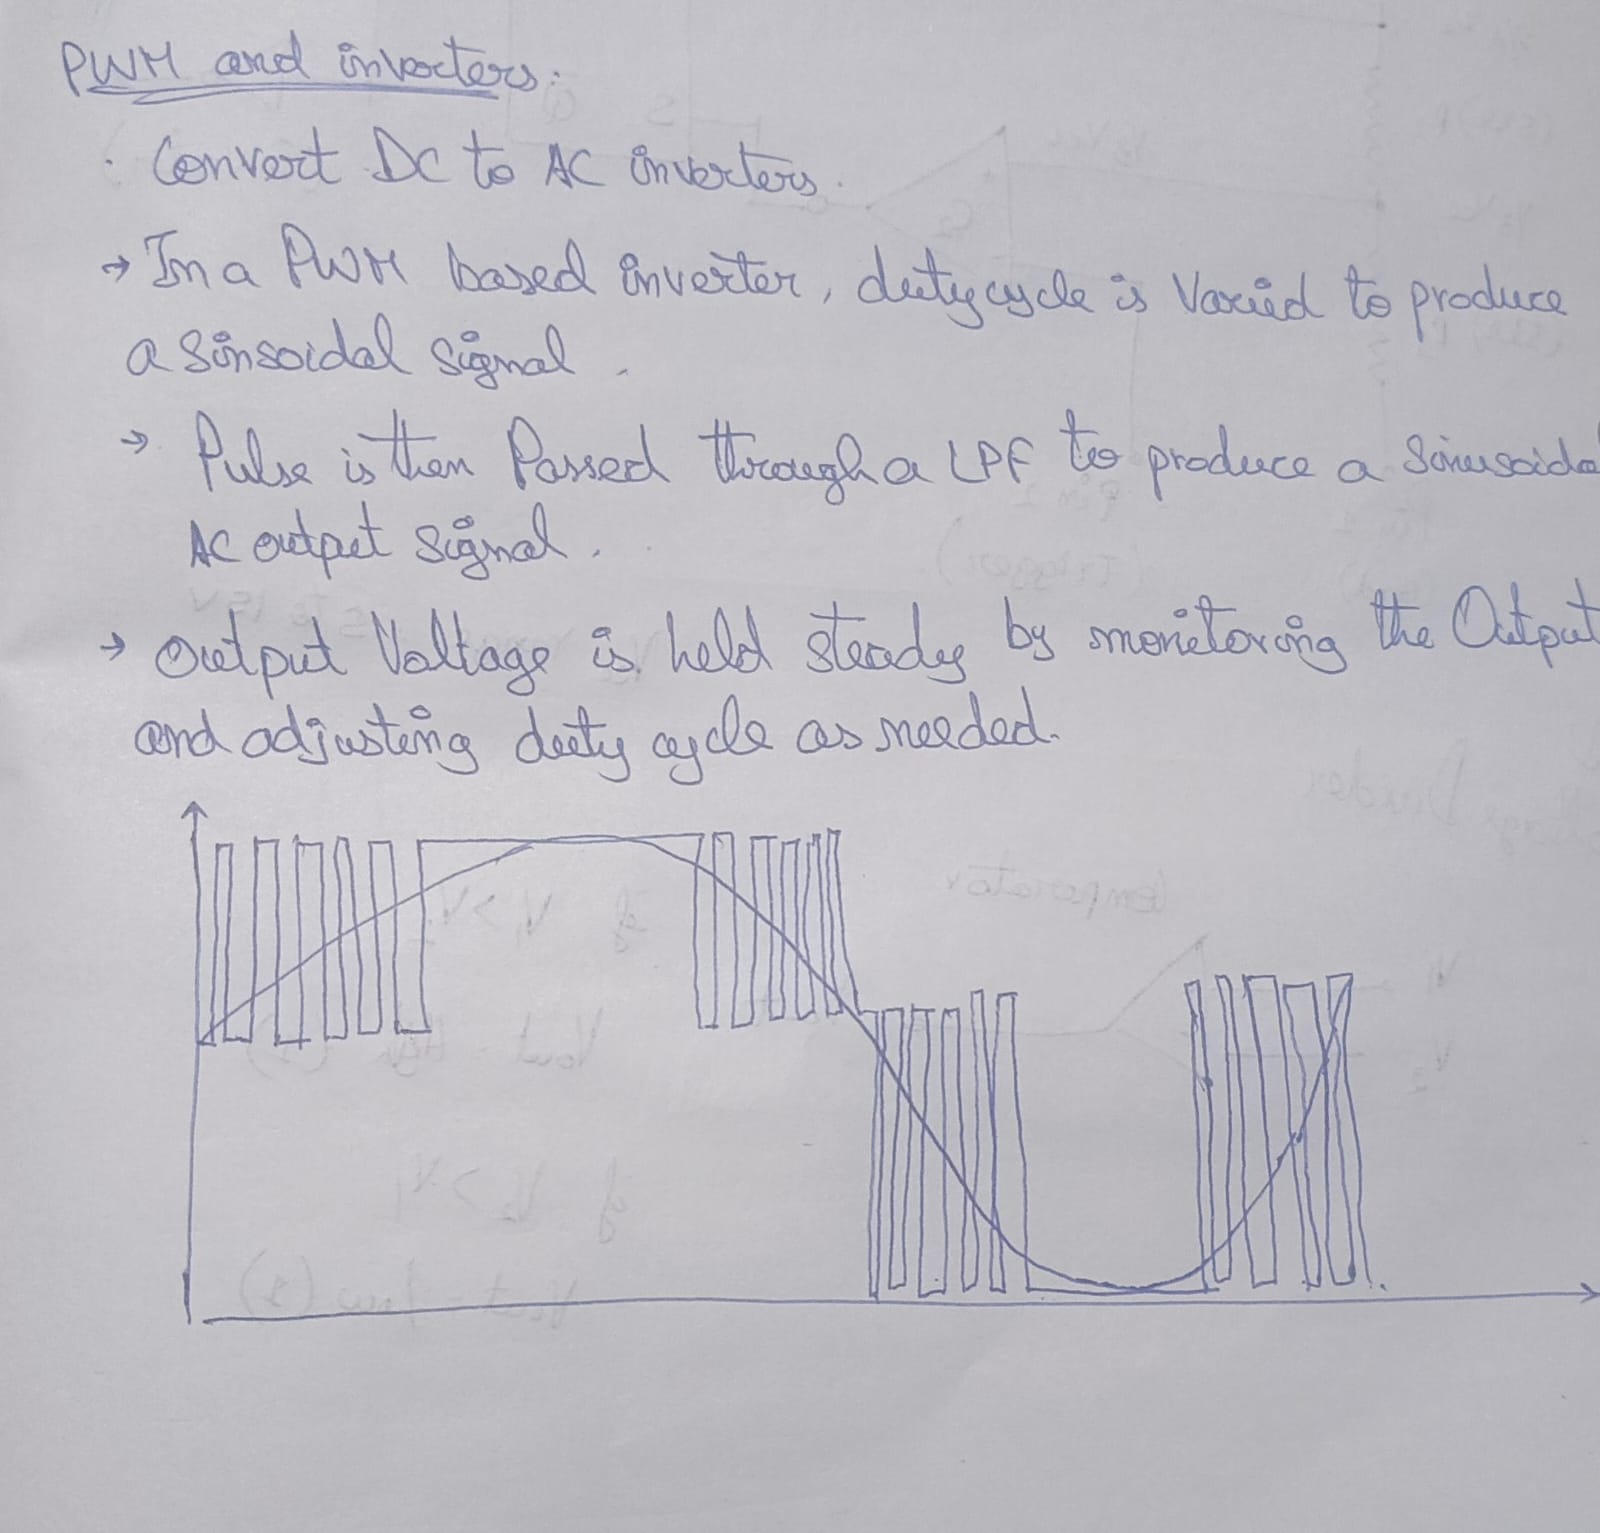 PWM and inverters:
. Convert DC to AC inverters.
→ In a PWM based inverter, duty cycle is Varied to produce
a Sinsoidal signal.
→ Pulse is then Passed through a LPF to produce a Sinusoidal
AC output signal.
→ Output Voltage is held steady by monitoring the Output
and adjusting duty cycle as needed.